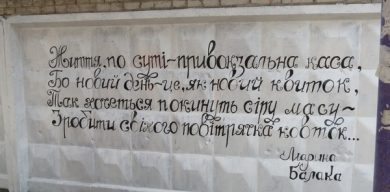 Життя, по суті - привокзальна каса,
Бо новий день - це, як новий квиток,
Так хочеться покинуть сіру масу ~
Зробити свіжого повітрячка ковток...
Марина
Балака